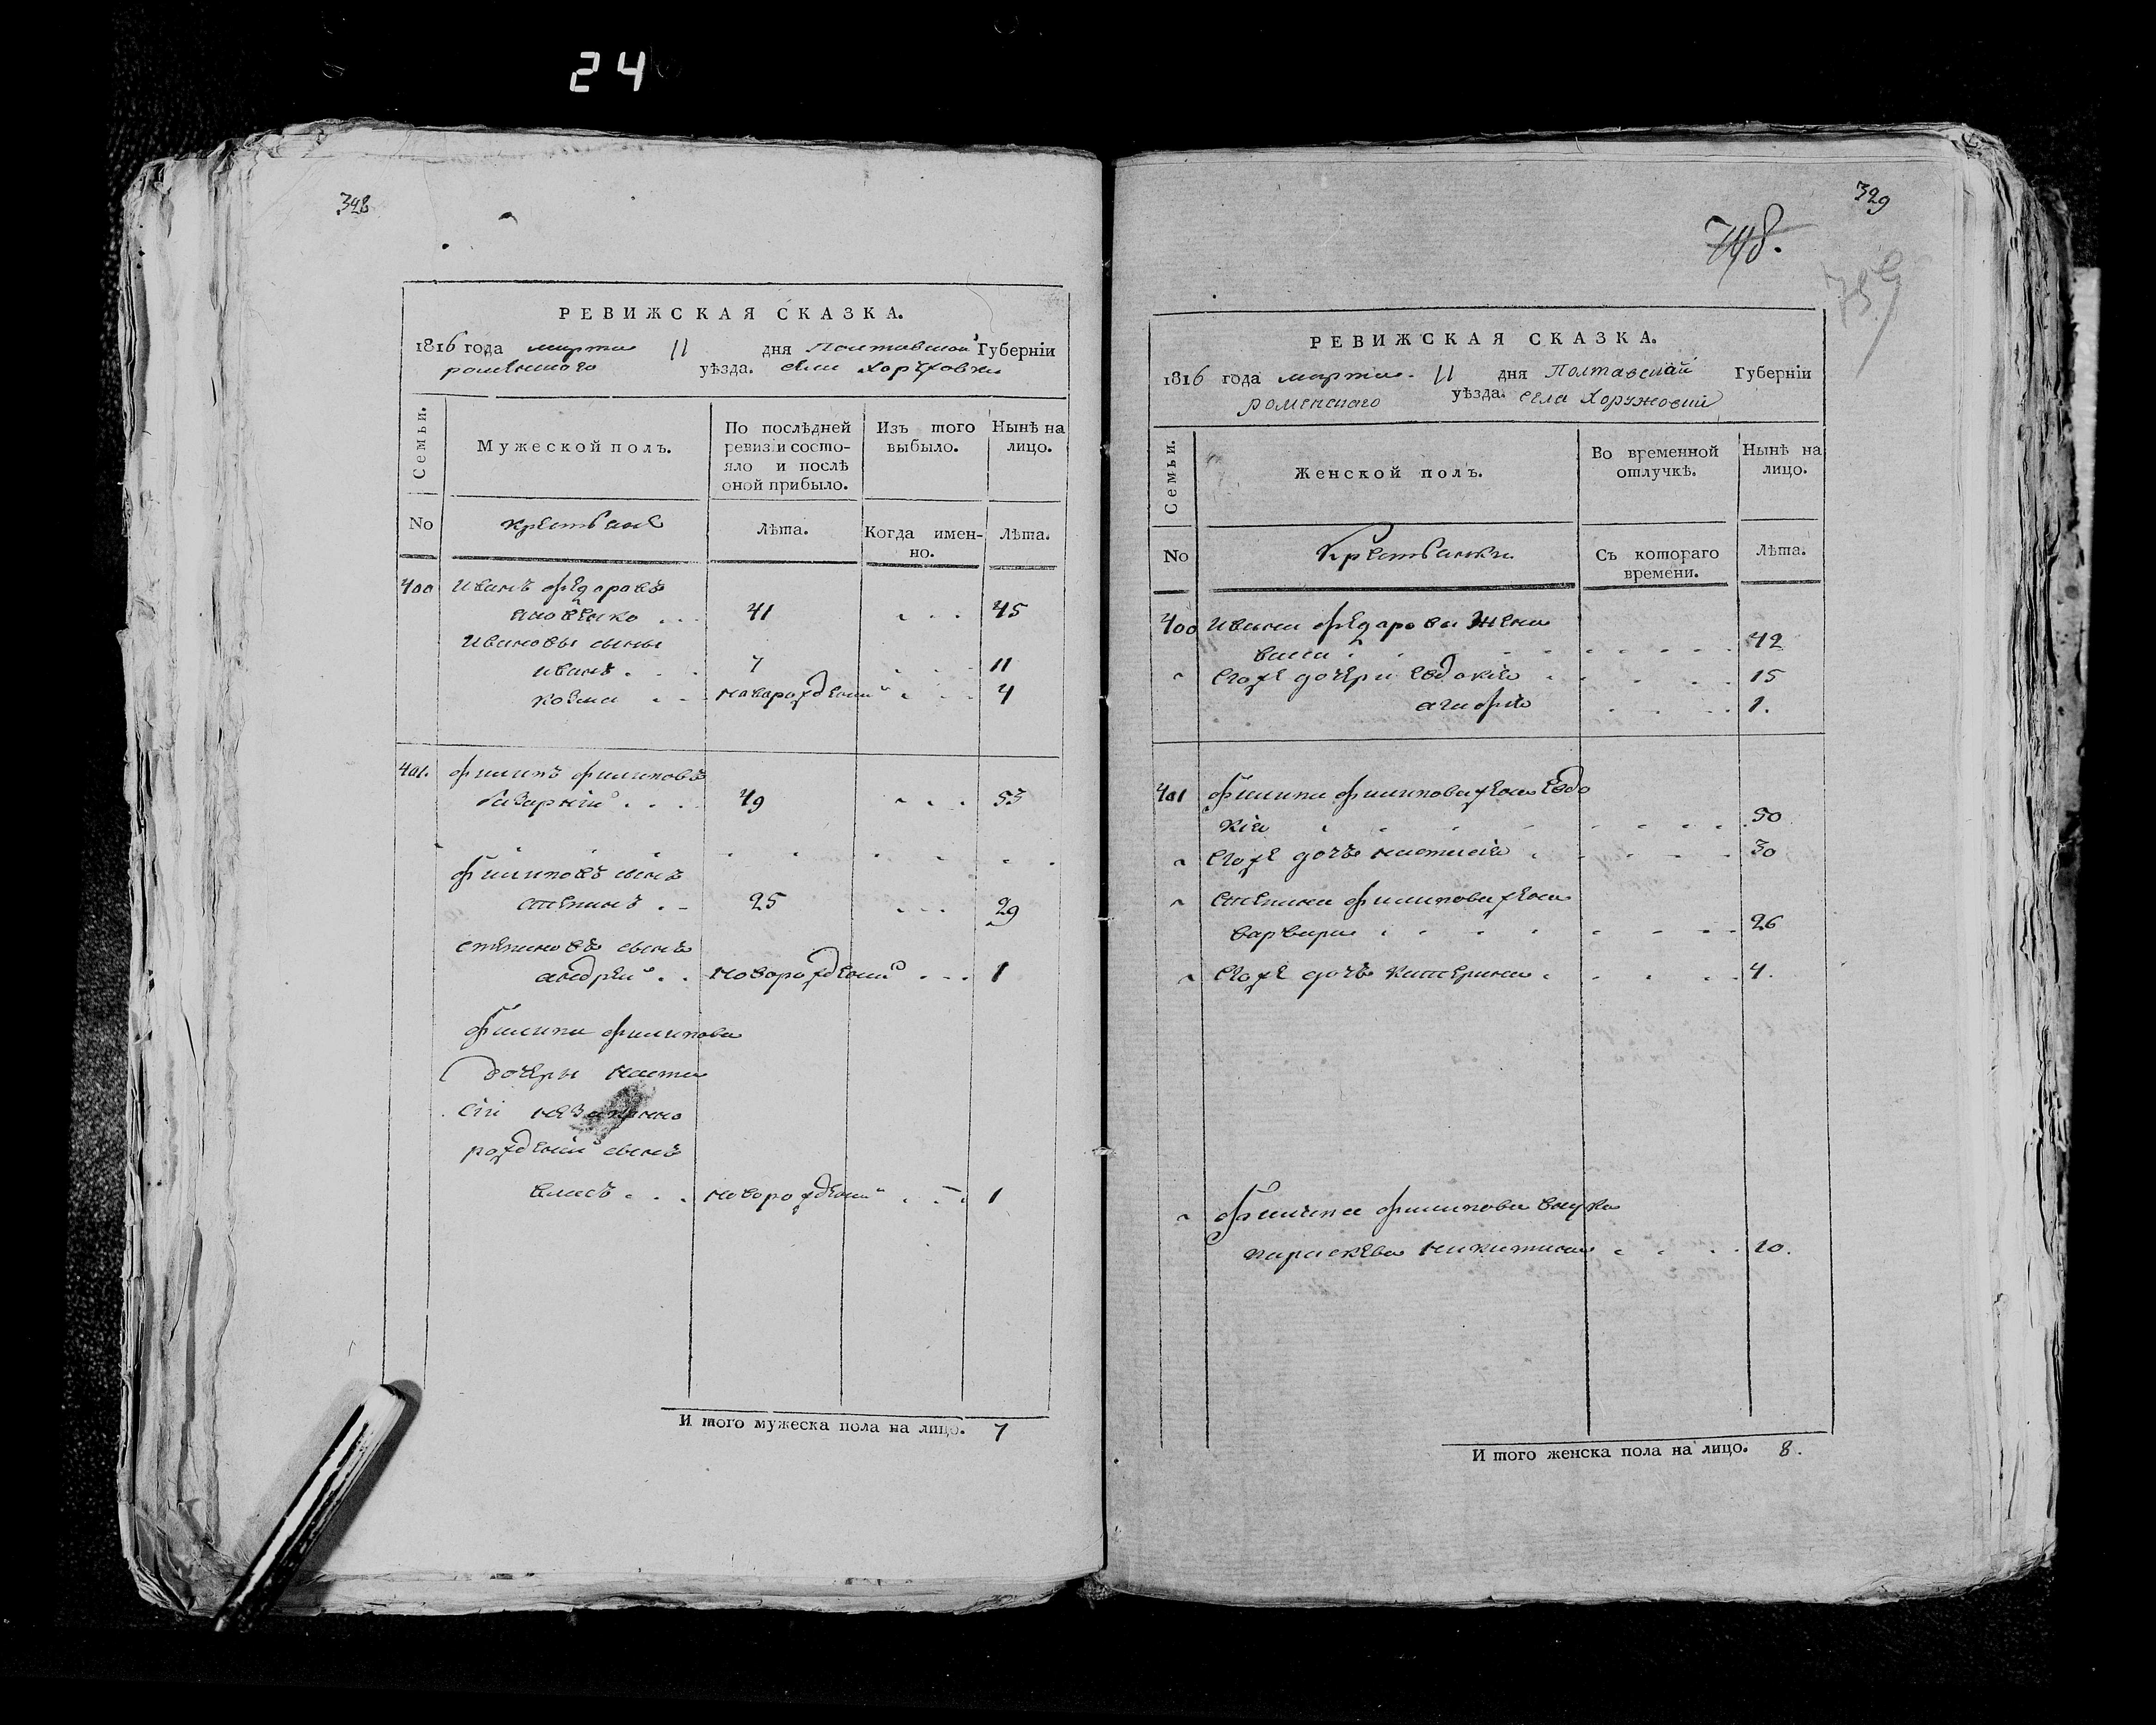 24
328
РЕВИЖСКАЯ СКАЗКА.
1816 года марта 11 дня Полтавской Губерніи
роменского уѣзда. села Хоружовки
Семьи.
Мужеской полъ.
По послѣдней ревизіи состояло и послѣ оной прибыло.
Изъ того выбыло.
Нынѣ на лицо.
No
крестьяне
Лѣта.
Когда именно.
Лѣта.
400 Иванъ федоровъ
41 45
Ивановы сыны
иванъ . . 7 11
козма . . новорожденій 4
401. филипъ филиповъ
49 53
филиповъ сынъ
степанъ . . 25 29
степановъ сынъ
андрей . . новорожденій . . . 1
филипа филипова
дочеры наста
сіи незаконно
рожденій сынъ
власъ . . . новорожденій . . . 1
И того мужеска пола на лицо. 7
329
748.
759
РЕВИЖСКАЯ СКАЗКА.
1816 года марта. 11 дня Полтавской Губерніи
роменскаго уѣзда. села Хоружовки
Семьи.
Женской полъ.
Во временной отлучкѣ.
Нынѣ на лицо.
No
Крестьянки
Съ котораго времени.
Лѣта.
400 Ивана федорова жена
васса 42
Егоже дочери евдокія 15
агафія 1.
401 филипа филипова жена Евдо
кія 50
Егоже дочь настасія 30
степана филипова жена
варвара 26
Егоже дочь катерина 4.
филипа филипова внука
параскева никитина 10.
И того женска пола на лицо. 8.